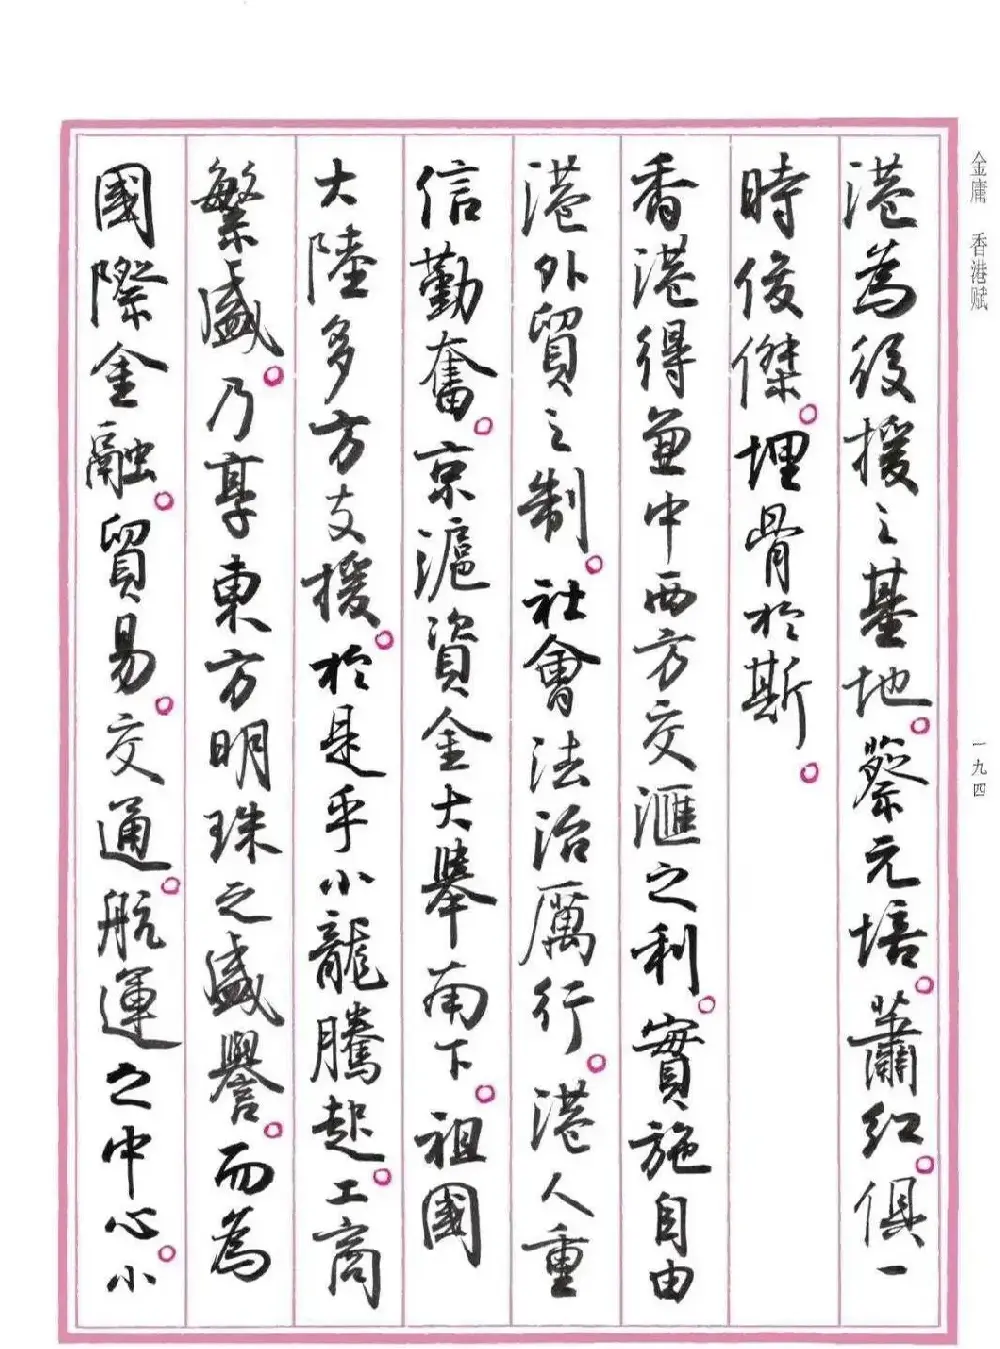 金庸 香港赋
一九四
港為後援之基地。蔡元培。蕭紅。俱一
時俊傑。埋骨於斯。
香港得兼中西方交滙之利。實施自由
港外貿之制。社會法治厲行。港人重
信勤奮。京滬資金大舉南下。祖國
大陸多方支援。於是乎小龍騰起。工商
繁盛。乃享東方明珠之盛譽。而為
國際金融。貿易。交通。航運之中心。小